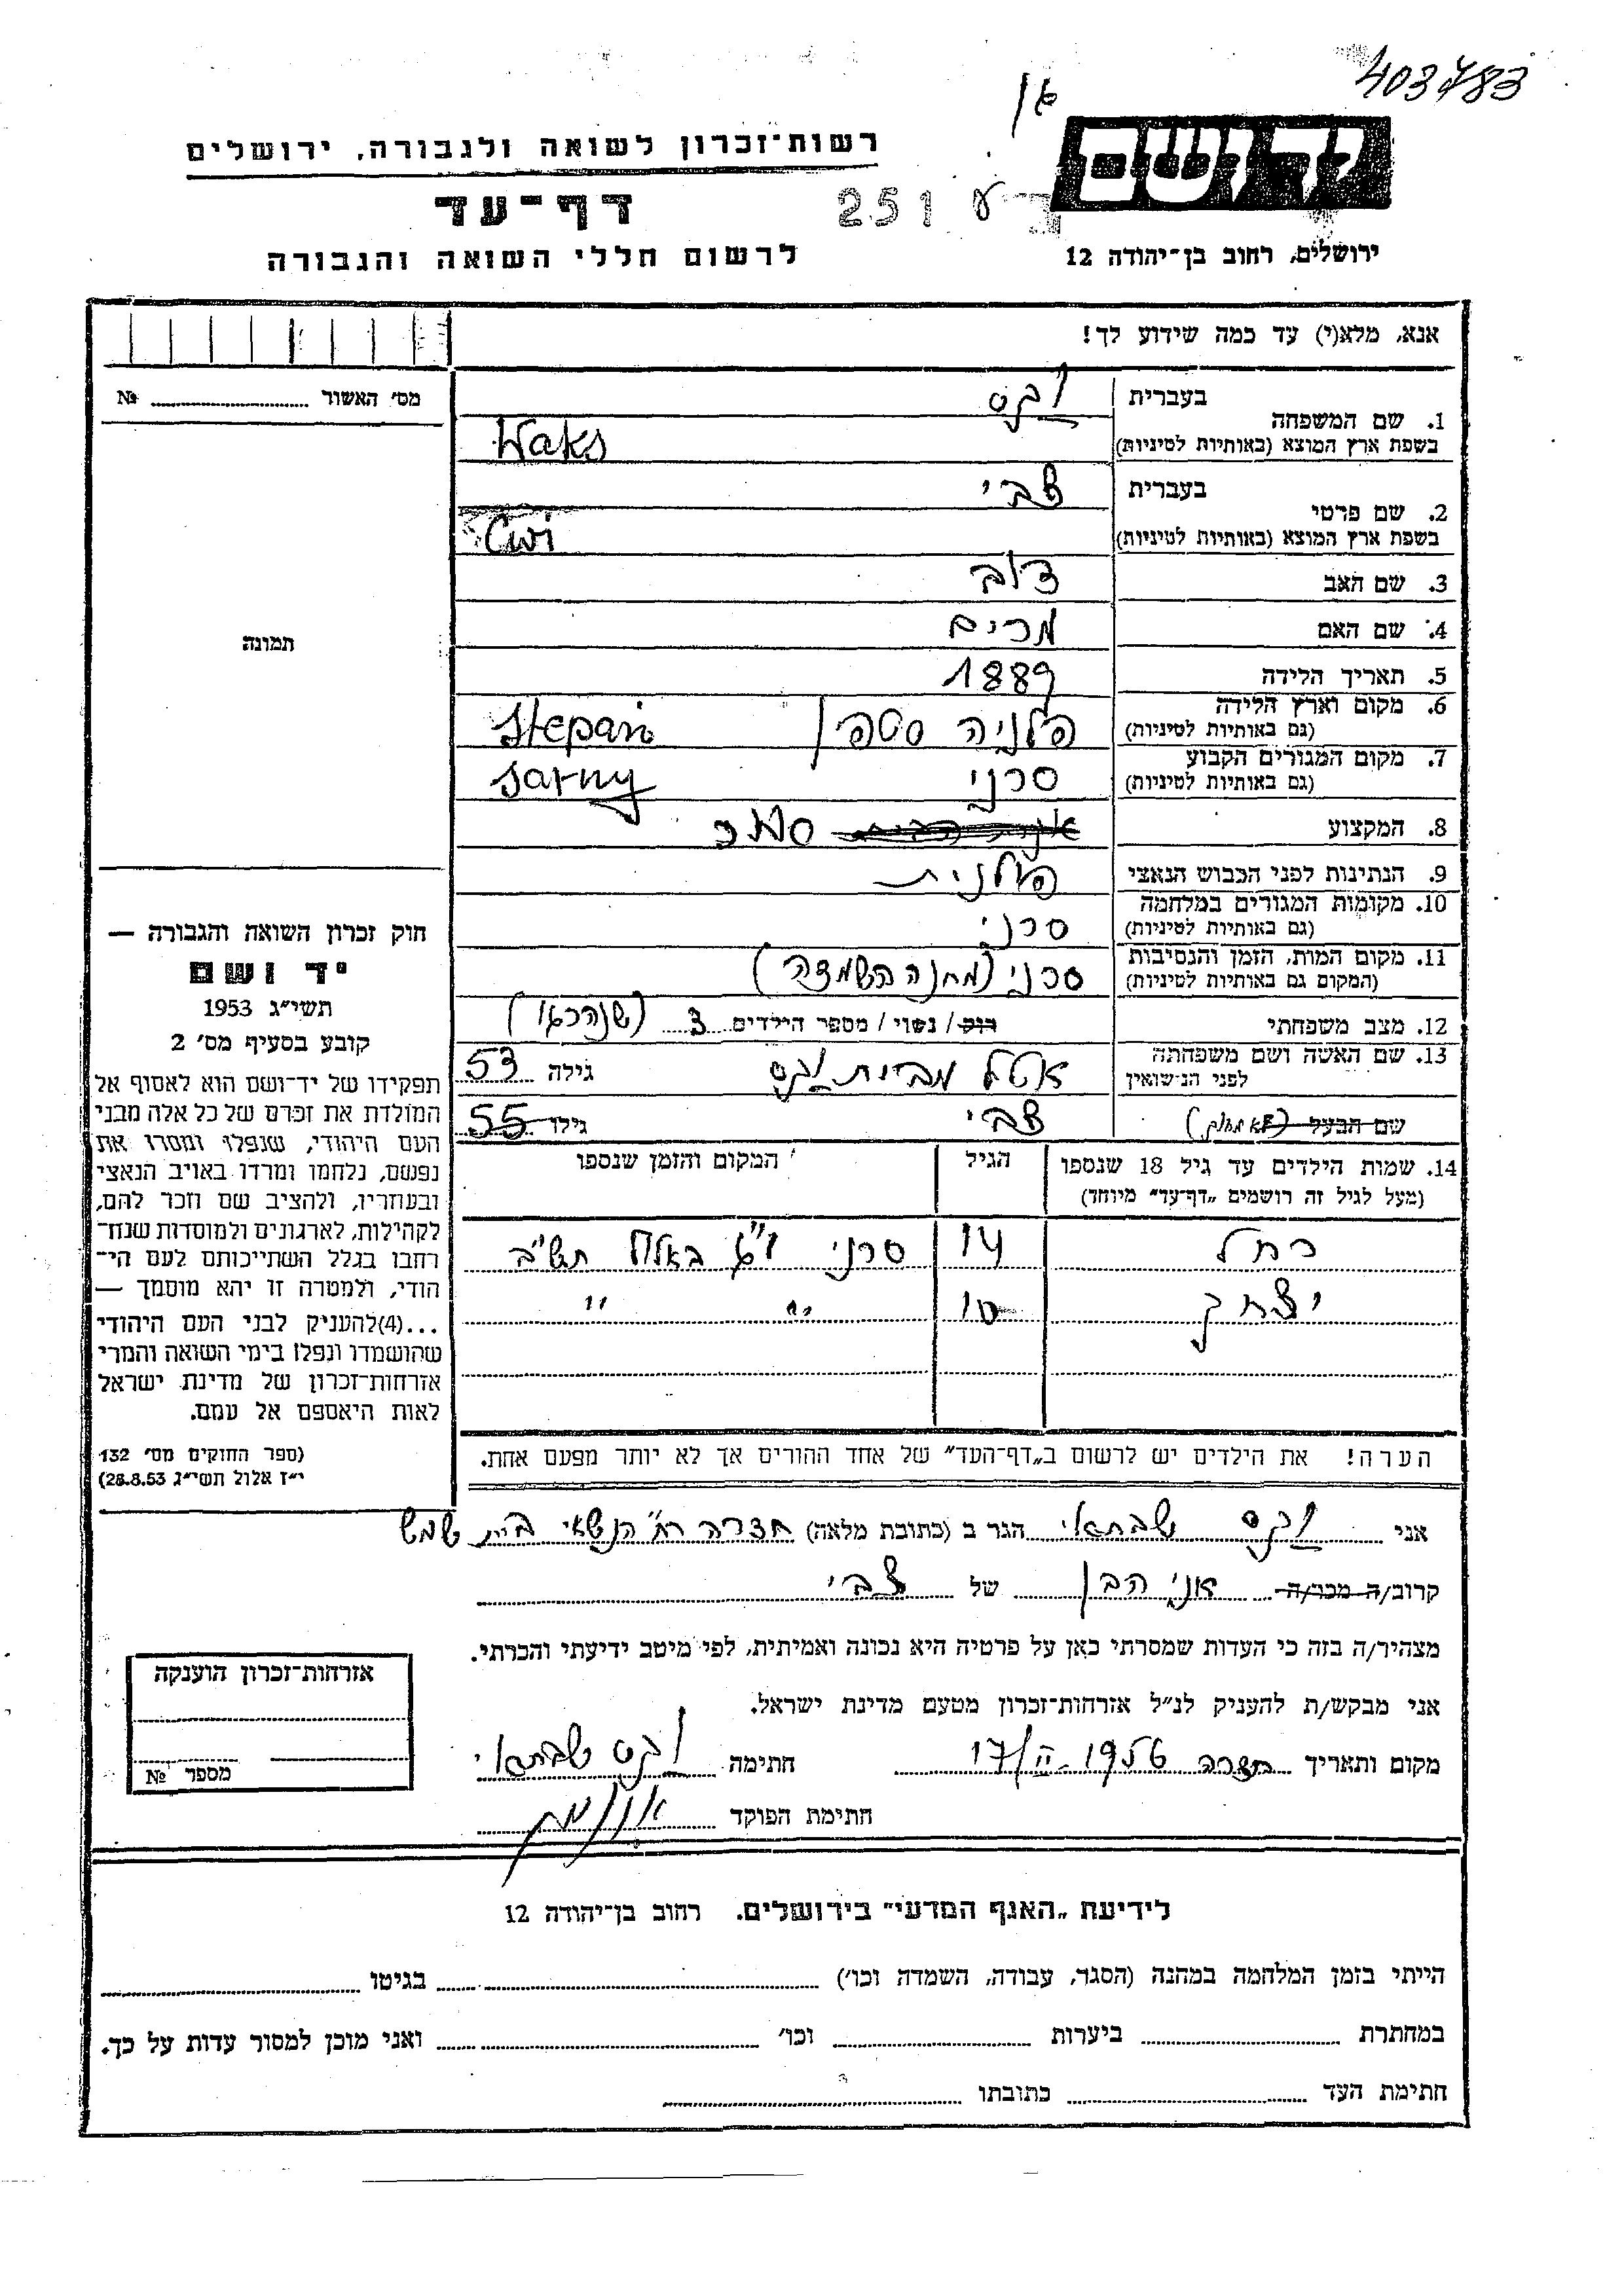 403783
רשות־זכרון לשואה ולגבורה, ירושלים
יד ושם
דף־עד
251 ע
לרשום חללי השואה והגבורה
ירושלים, רחוב בן־יהודה 12
אנא, מלא(י) עד כמה שידוע לך!
מס׳ האשור № 
בעברית וקס
1. שם המשפחה
בשפת ארץ המוצא (באותיות לטיניות) Waks
בעברית צבי
2. שם פרטי
בשפת ארץ המוצא (באותיות לטיניות) Cwi
3. שם האב דוב
4. שם האם מרים
5. תאריך הלידה 1889
6. מקום וארץ הלידה
(גם באותיות לטיניות) פלניה סטפן Stepań
7. מקום המגורים הקבוע
(גם באותיות לטיניות) סרני Sarny
8. המקצוע סוחר
9. הנתינות לפני הכבוש הנאצי פולנית
10. מקומות המגורים במלחמה
(גם באותיות לטיניות) סרני
11. מקום המות, הזמן והנסיבות
(המקום גם באותיות לטיניות) סרני (מחנה השמדה)
12. מצב משפחתי רוק / נשוי / מספר הילדים 3
13. שם האשה ושם משפחתה
לפני הנישואין מבית וקס גילה 53
שם הבעל צבי גילו 55
תמונה
חוק זכרון השואה והגבורה —
יד ושם
תשי״ג 1953
קובע בסעיף מס׳ 2
תפקידו של יד־ושם הוא לאסוף אל
המולדת את זכרם של כל אלה מבני
העם היהודי, שנפלו ומסרו את
נפשם, נלחמו ומרדו באויב הנאצי
ובעוזריו, ולהציב שם וזכר להם,
לקהילות, לארגונים ולמוסדות שנח־
רחבו בגלל השתייכותם לעם הי־
הודי, ולמטרה זו יהא מוסמך —
...(4)להעניק לבני העם היהודי
שהושמדו ונפלו בימי השואה והמרי
אזרחות־זכרון של מדינת ישראל
לאות היאספם אל עמם.
(ספר החוקים מס׳ 132
י״ז אלול תשי״ג 28.8.53)
14. שמות הילדים עד גיל 18 שנספו
(מעל לגיל זה רושמים „דף־עד״ מיוחד) הגיל המקום והזמן שנספו
רחל 14 סרני י״ג באלול תש״ב
יצחק 10 " "
הערה! את הילדים יש לרשום ב„דף־העד״ של אחד ההורים אך לא יותר מפעם אחת.
אני וקס שבתאי הגר ב (כתובת מלאה) חדרה רח׳ הנשיאי בית שמש
קרוב/ה מכר/ה אני הבן של צבי
מצהיר/ה בזה כי העדות שמסרתי כאן על פרטיה היא נכונה ואמיתית, לפי מיטב ידיעתי והכרתי.
אני מבקש/ת להעניק לנ״ל אזרחות־זכרון מטעם מדינת ישראל.
מקום ותאריך חדרה 17/II-1956 חתימה וקס שבתאי
חתימת הפוקד
אזרחות־זכרון הוענקה
מספר №
לידיעת „האגף המדעי״ בירושלים. רחוב בן־יהודה 12
הייתי בזמן המלחמה במחנה (הסגר, עבודה, השמדה וכו׳) בגיטו
במחתרת ביערות וכו׳ ואני מוכן למסור עדות על כך.
חתימת העד כתובתו